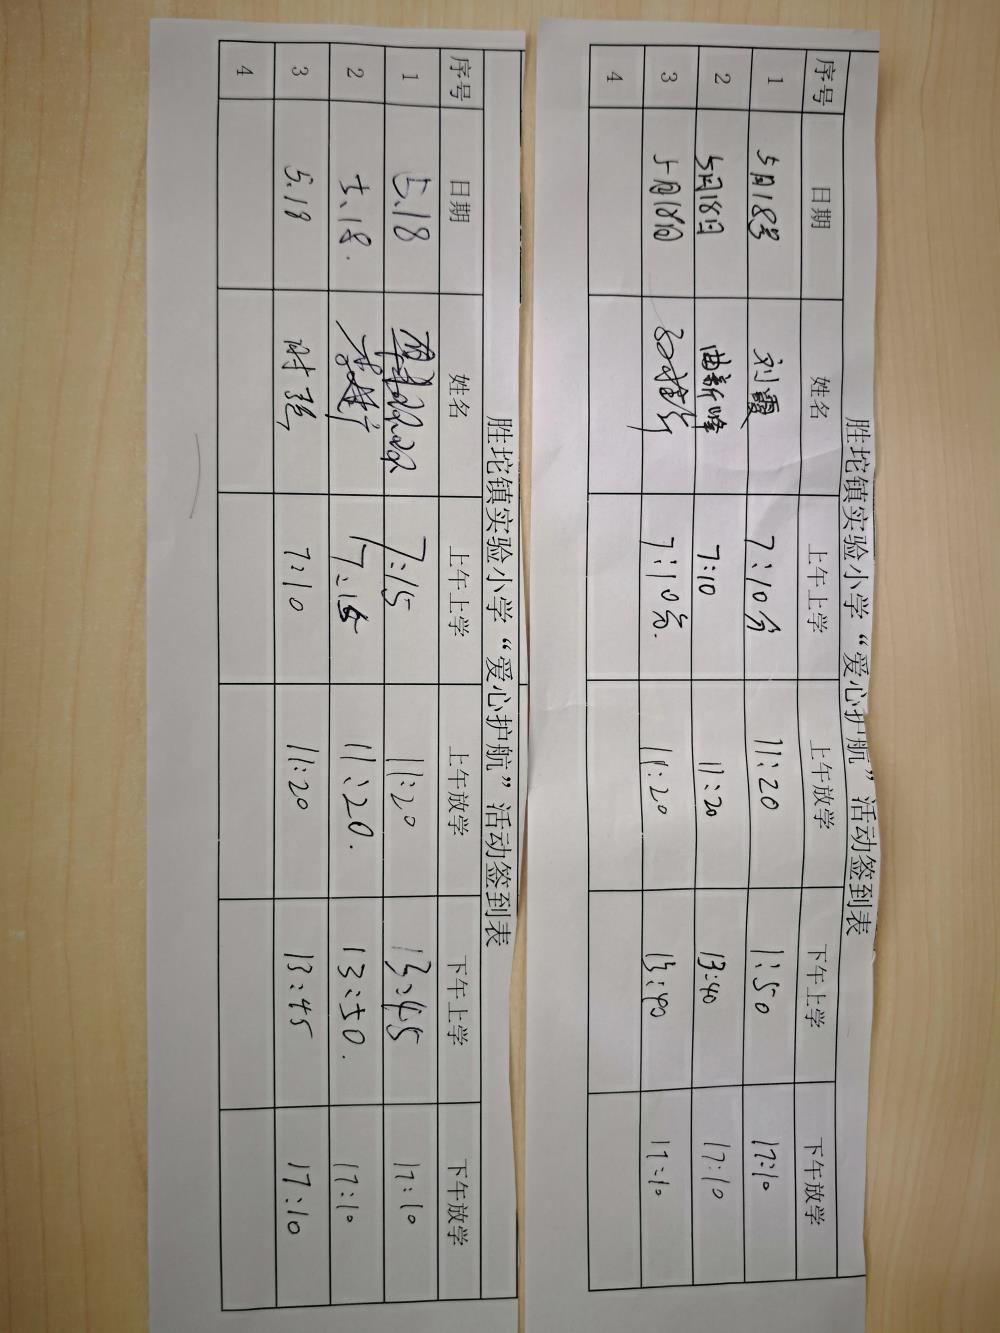 胜坨镇实验小学“爱心护航”活动签到表
序号 日期 姓名 上午上学 上午放学 下午上学 下午放学
1 5月18号 刘霞 7:10分 11:20 1:50 17:10
2 5月18日 曲新峰 7:10 11:20 13:40 17:10
3 5月18日 7:10分. 11:20 13:40 17:10
4
胜坨镇实验小学“爱心护航”活动签到表
序号 日期 姓名 上午上学 上午放学 下午上学 下午放学
1 5.18 7:15 11:20 13:45 17:10
2 5.18. 7:15 11:20. 13:50. 17:10
3 5.18 7:10 11:20 13:45 17:10
4